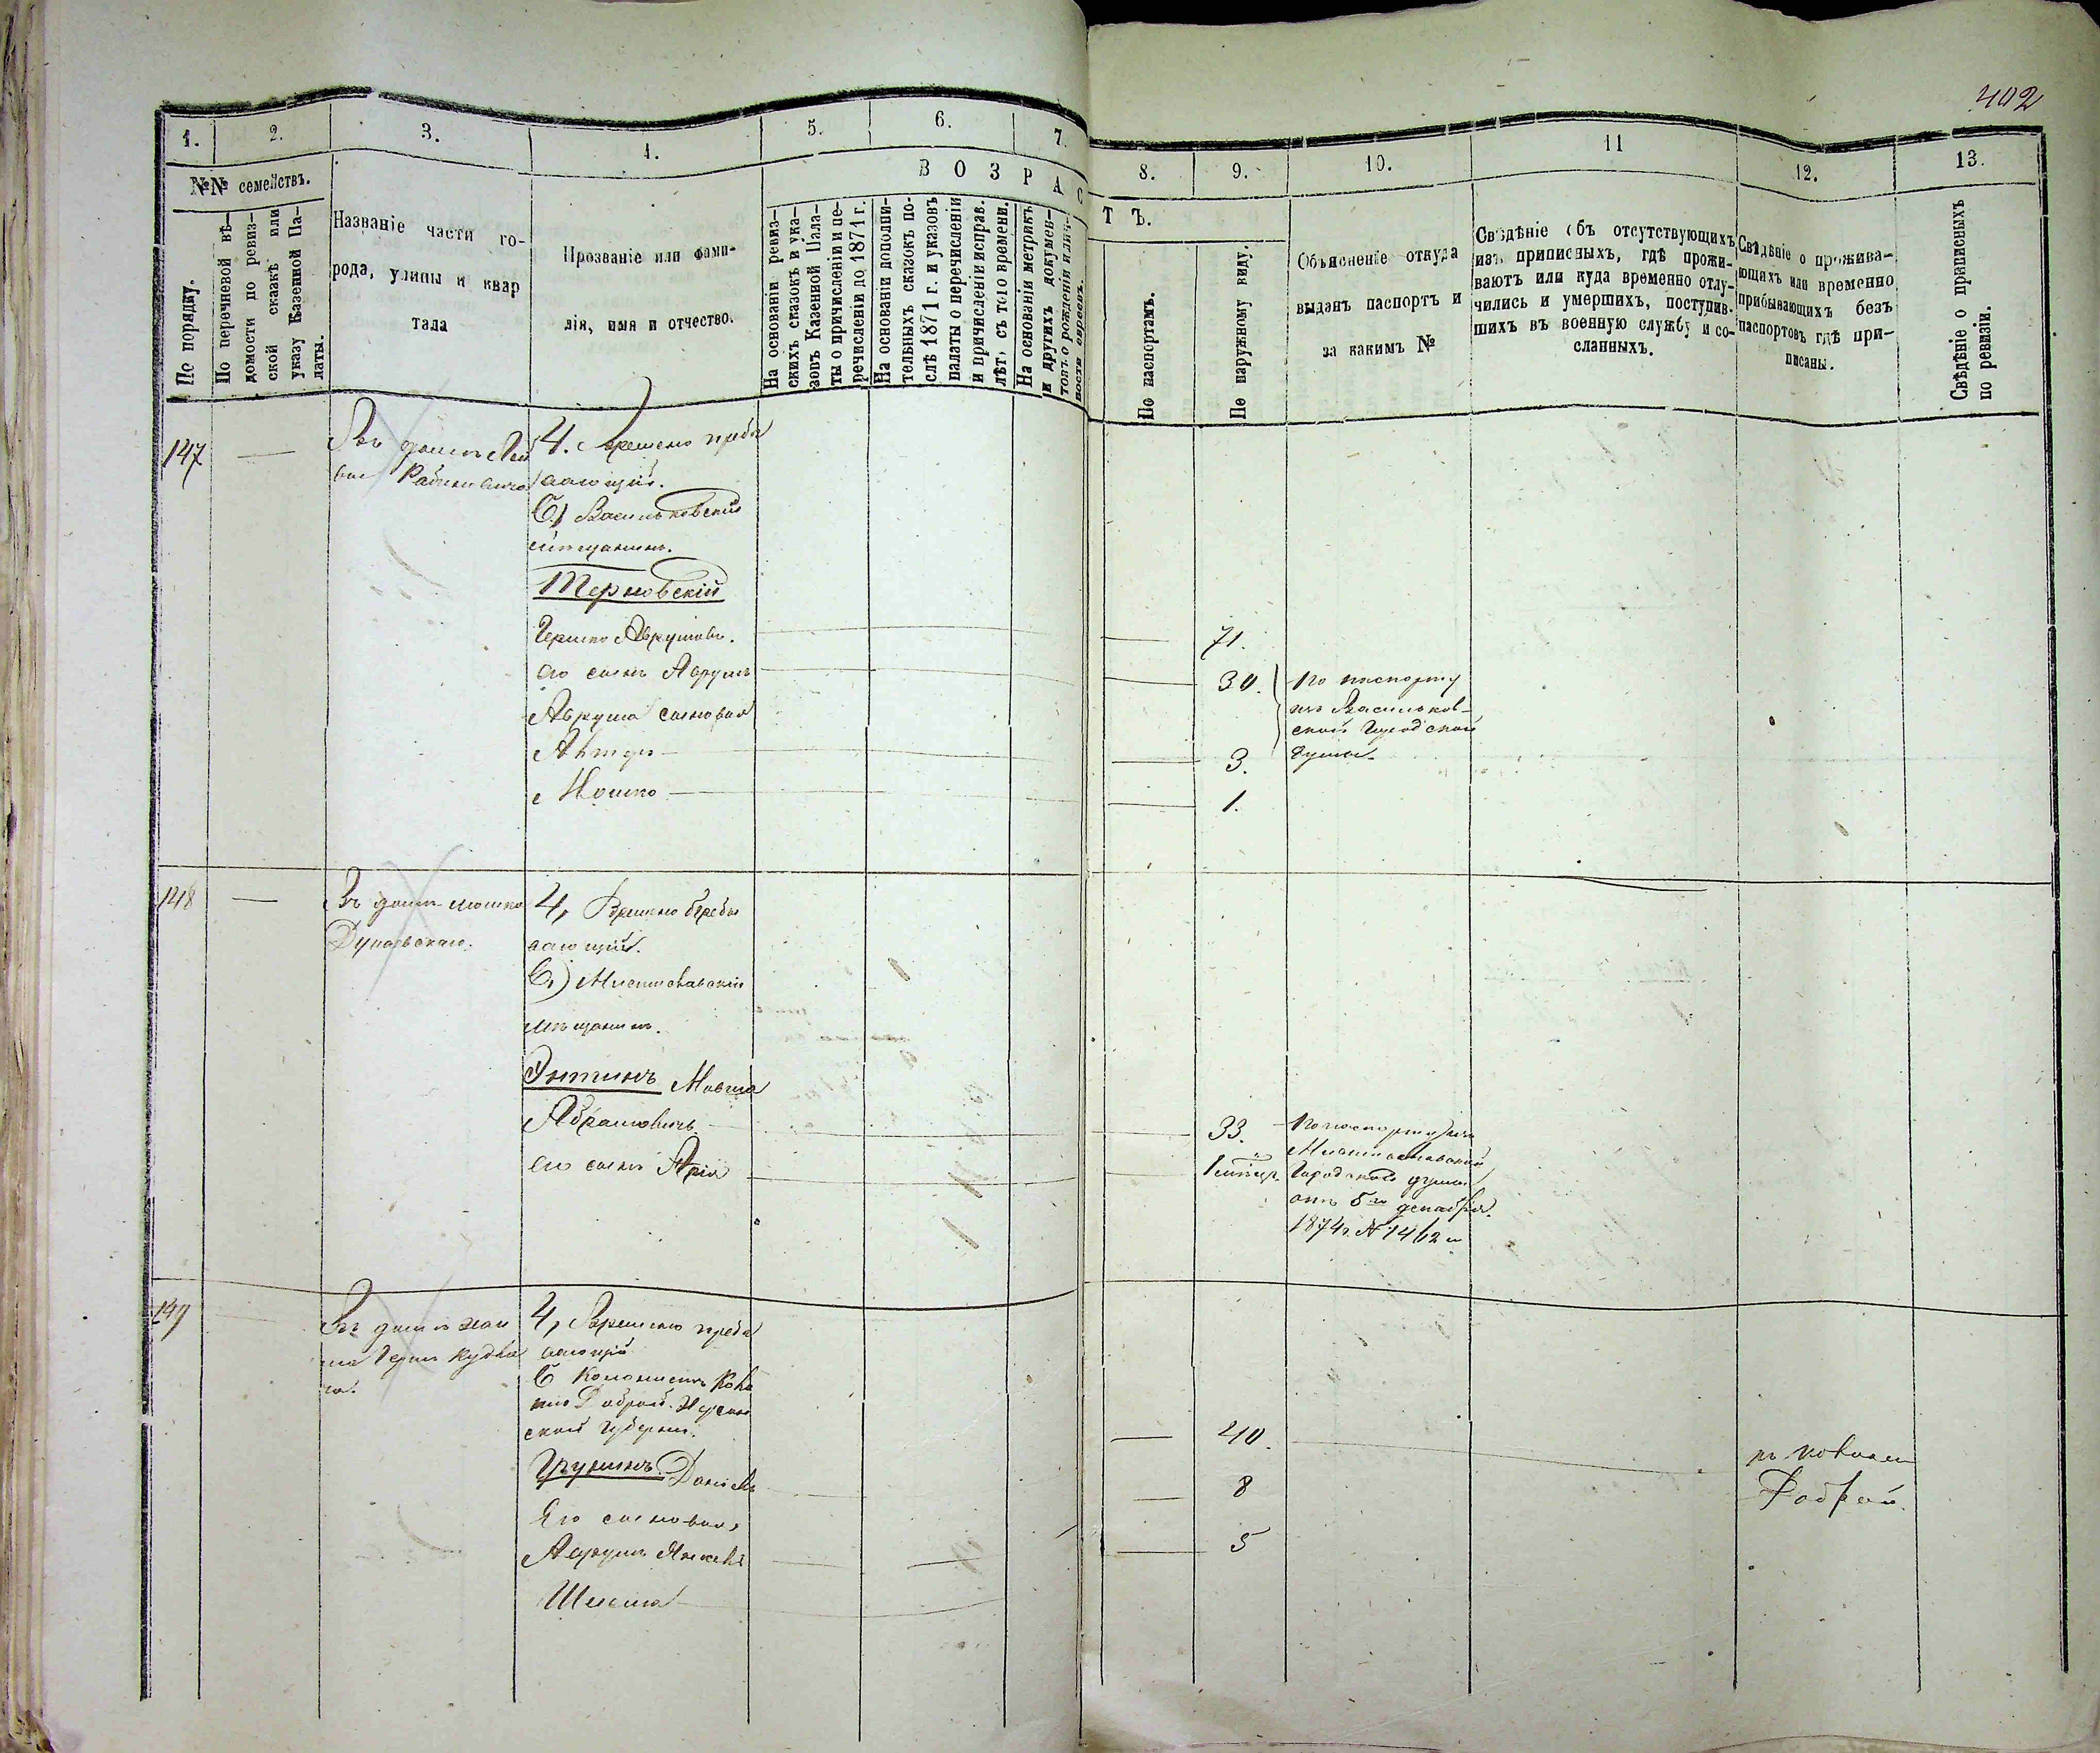 402
1.
2.
3.
4.
5.
6.
7.
8.
9.
10.
11
12.
13.
№№ семействъ.
По порядку.
По перечневой вѣ-
домости по ревиз-
ской сказкѣ или
указу Казенной Па-
латы.
Названіе части го-
рода, улицы и квар
тала
Прозваніе или фами-
лія, имя и отчество.
ВОЗРАСТЪ.
На основаніи ревиз-
скихъ сказокъ и ука-
зовъ Казенной Пала-
ты о причисленіи и пе-
речисленіи до 1871 г.
На основаніи дополни-
тельныхъ сказокъ по-
слѣ 1871 г. и указовъ
палаты о перечисленіи
и причисленіи исправ.
лѣтъ съ того времени.
На основаніи метрикъ
и другихъ докумен-
товъ о рожденіи и лич-
ности евреевъ.
По паспортамъ.
По наружному виду.
Объясненіе откуда
выданъ паспортъ и
за какимъ №
Свѣдѣніе объ отсутствующихъ
изъ приписныхъ, гдѣ прожи-
ваютъ или куда временно отлу-
чились и умершихъ, поступив-
шихъ въ военную службу и со-
сланныхъ.
Свѣдѣніе о прожива-
ющихъ или временно
прибывающихъ безъ
паспортовъ гдѣ при-
писаны.
Свѣдѣніе о приписныхъ
по ревизіи.
147
Въ домѣ
Рабиновича
4. Времено преб
вающій.
Б) Васильковскій
мѣщанинъ.
Терновскій
Гершко Аврумовъ.
71.
его сынъ Аврумъ
30.
По паспорту
изъ Васильков-
ской Городской
Думы.
Аврума сыновья
3.
Мошко
1.
148
Въ домѣ Мошко
Дунаевскаго.
4, Времено пребы
вающій.
Б) Мстиславскій
мѣщанинъ.
Энтинъ Мовша
Абрамовичъ
33.
его сынъ Арія
По паспорту изъ
Мстиславской
Городской думы
отъ 5го декабря
1874 г. №
149
Въ домѣ
4, Времено преб
вающій
Б Колонистъ
Доброй. Херсон
ской Губерніи.
Даніель
40.
Его сыновья
8
Аврумъ
5
Добрай.